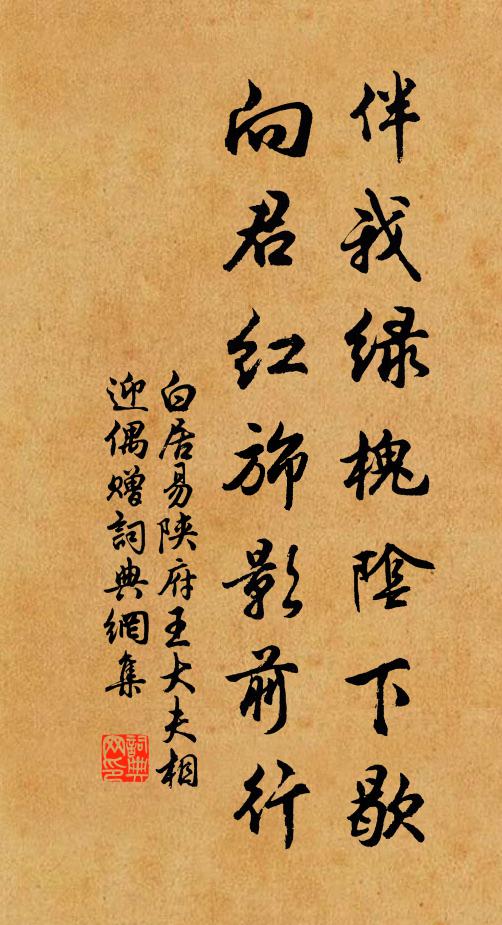 伴我緑槐陰下歇
向君紅旆影前行
白居易陝府王大夫相
迎偶贈詞典網集
詞典
网印